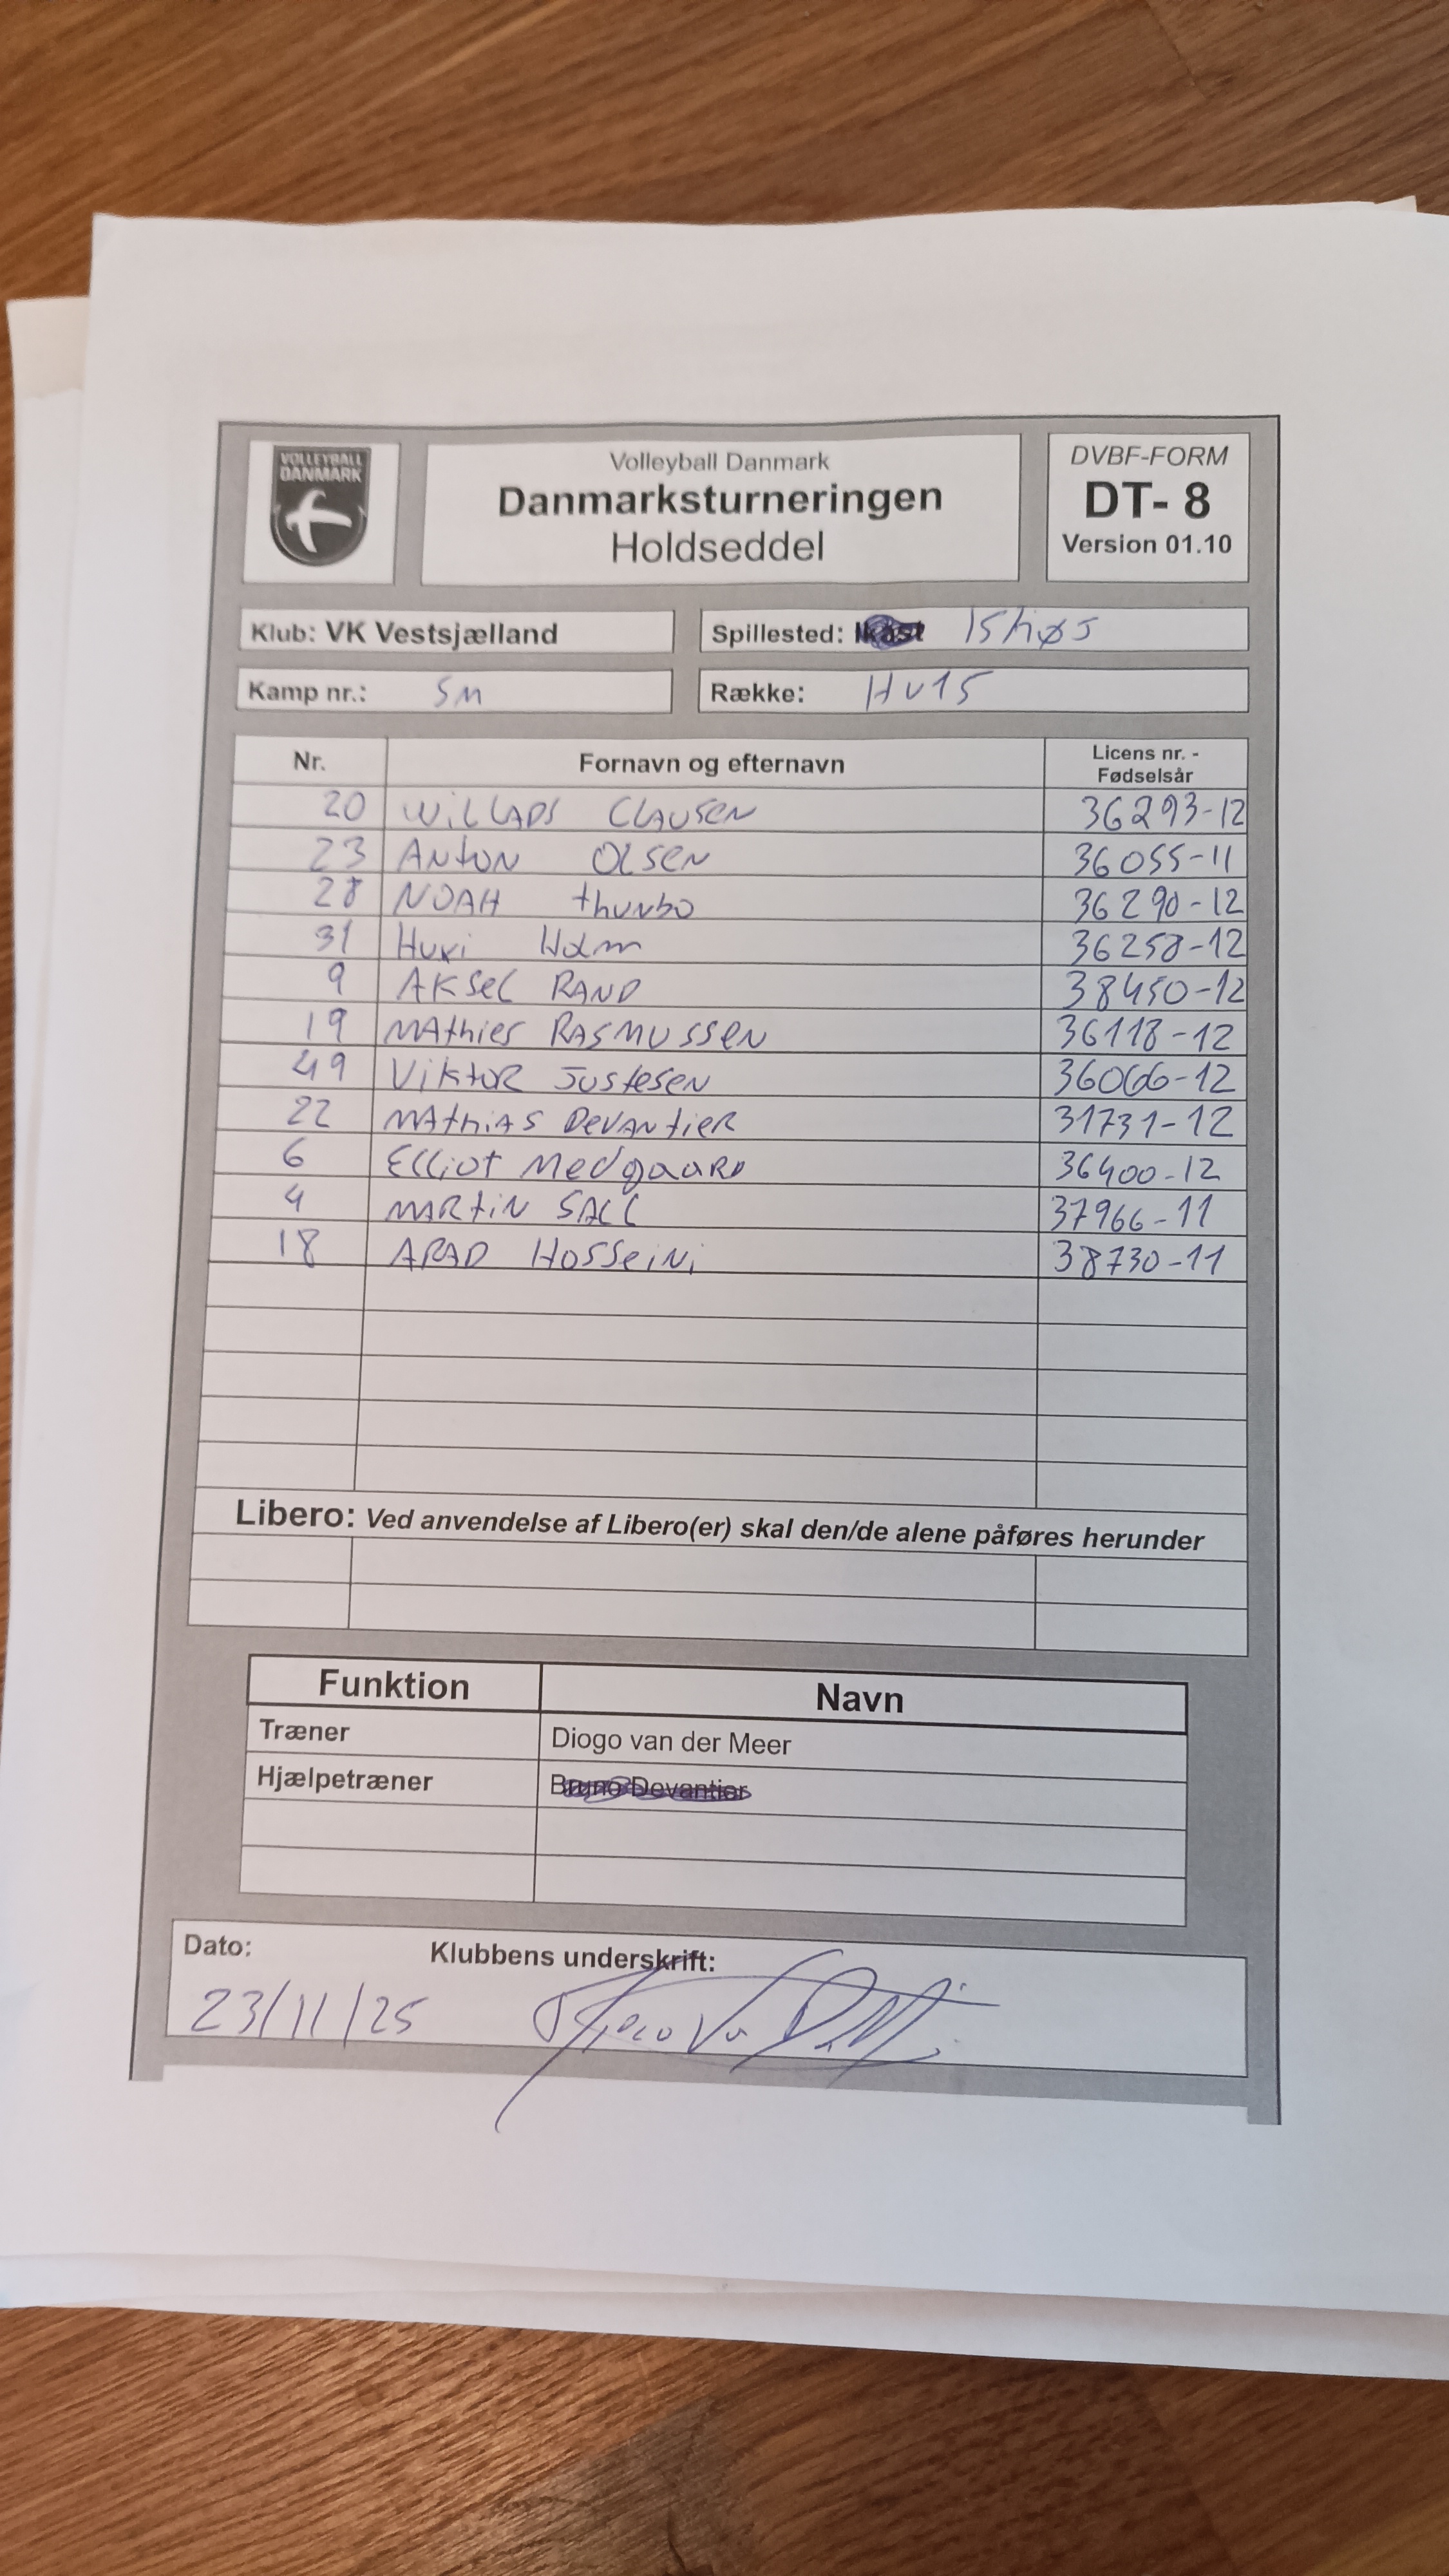 VOLLEYBALL
DANMARK
Volleyball Danmark
Danmarksturneringen
Holdseddel
DVBF-FORM
DT- 8
Version 01.10
Klub: VK Vestsjælland
Spillested: Ikast Ishøj
Kamp nr.: SM
Række: HU15
Nr. Fornavn og efternavn Licens nr. - Fødselsår
20 WILLADS CLAUSEN 36293-12
23 ANtON OLSEN 36055-11
28 NOAH thunbo 36290-12
31 Huxi Holm 36258-12
9 AKSEL RAND 38450-12
19 MAthies RASMUSSEN 36118-12
49 ViKtOR Justesen 36066-12
22 MAthiAS DEVANtiER 31731-12
6 Elliot Medgaard 36400-12
4 MARtiN SALL 37966-11
18 ARAD HOSSEiNi 38730-11
Libero: Ved anvendelse af Libero(er) skal den/de alene påføres herunder
Funktion Navn
Træner Diogo van der Meer
Hjælpetræner Bruno Devantier
Dato: Klubbens underskrift:
23/11/25